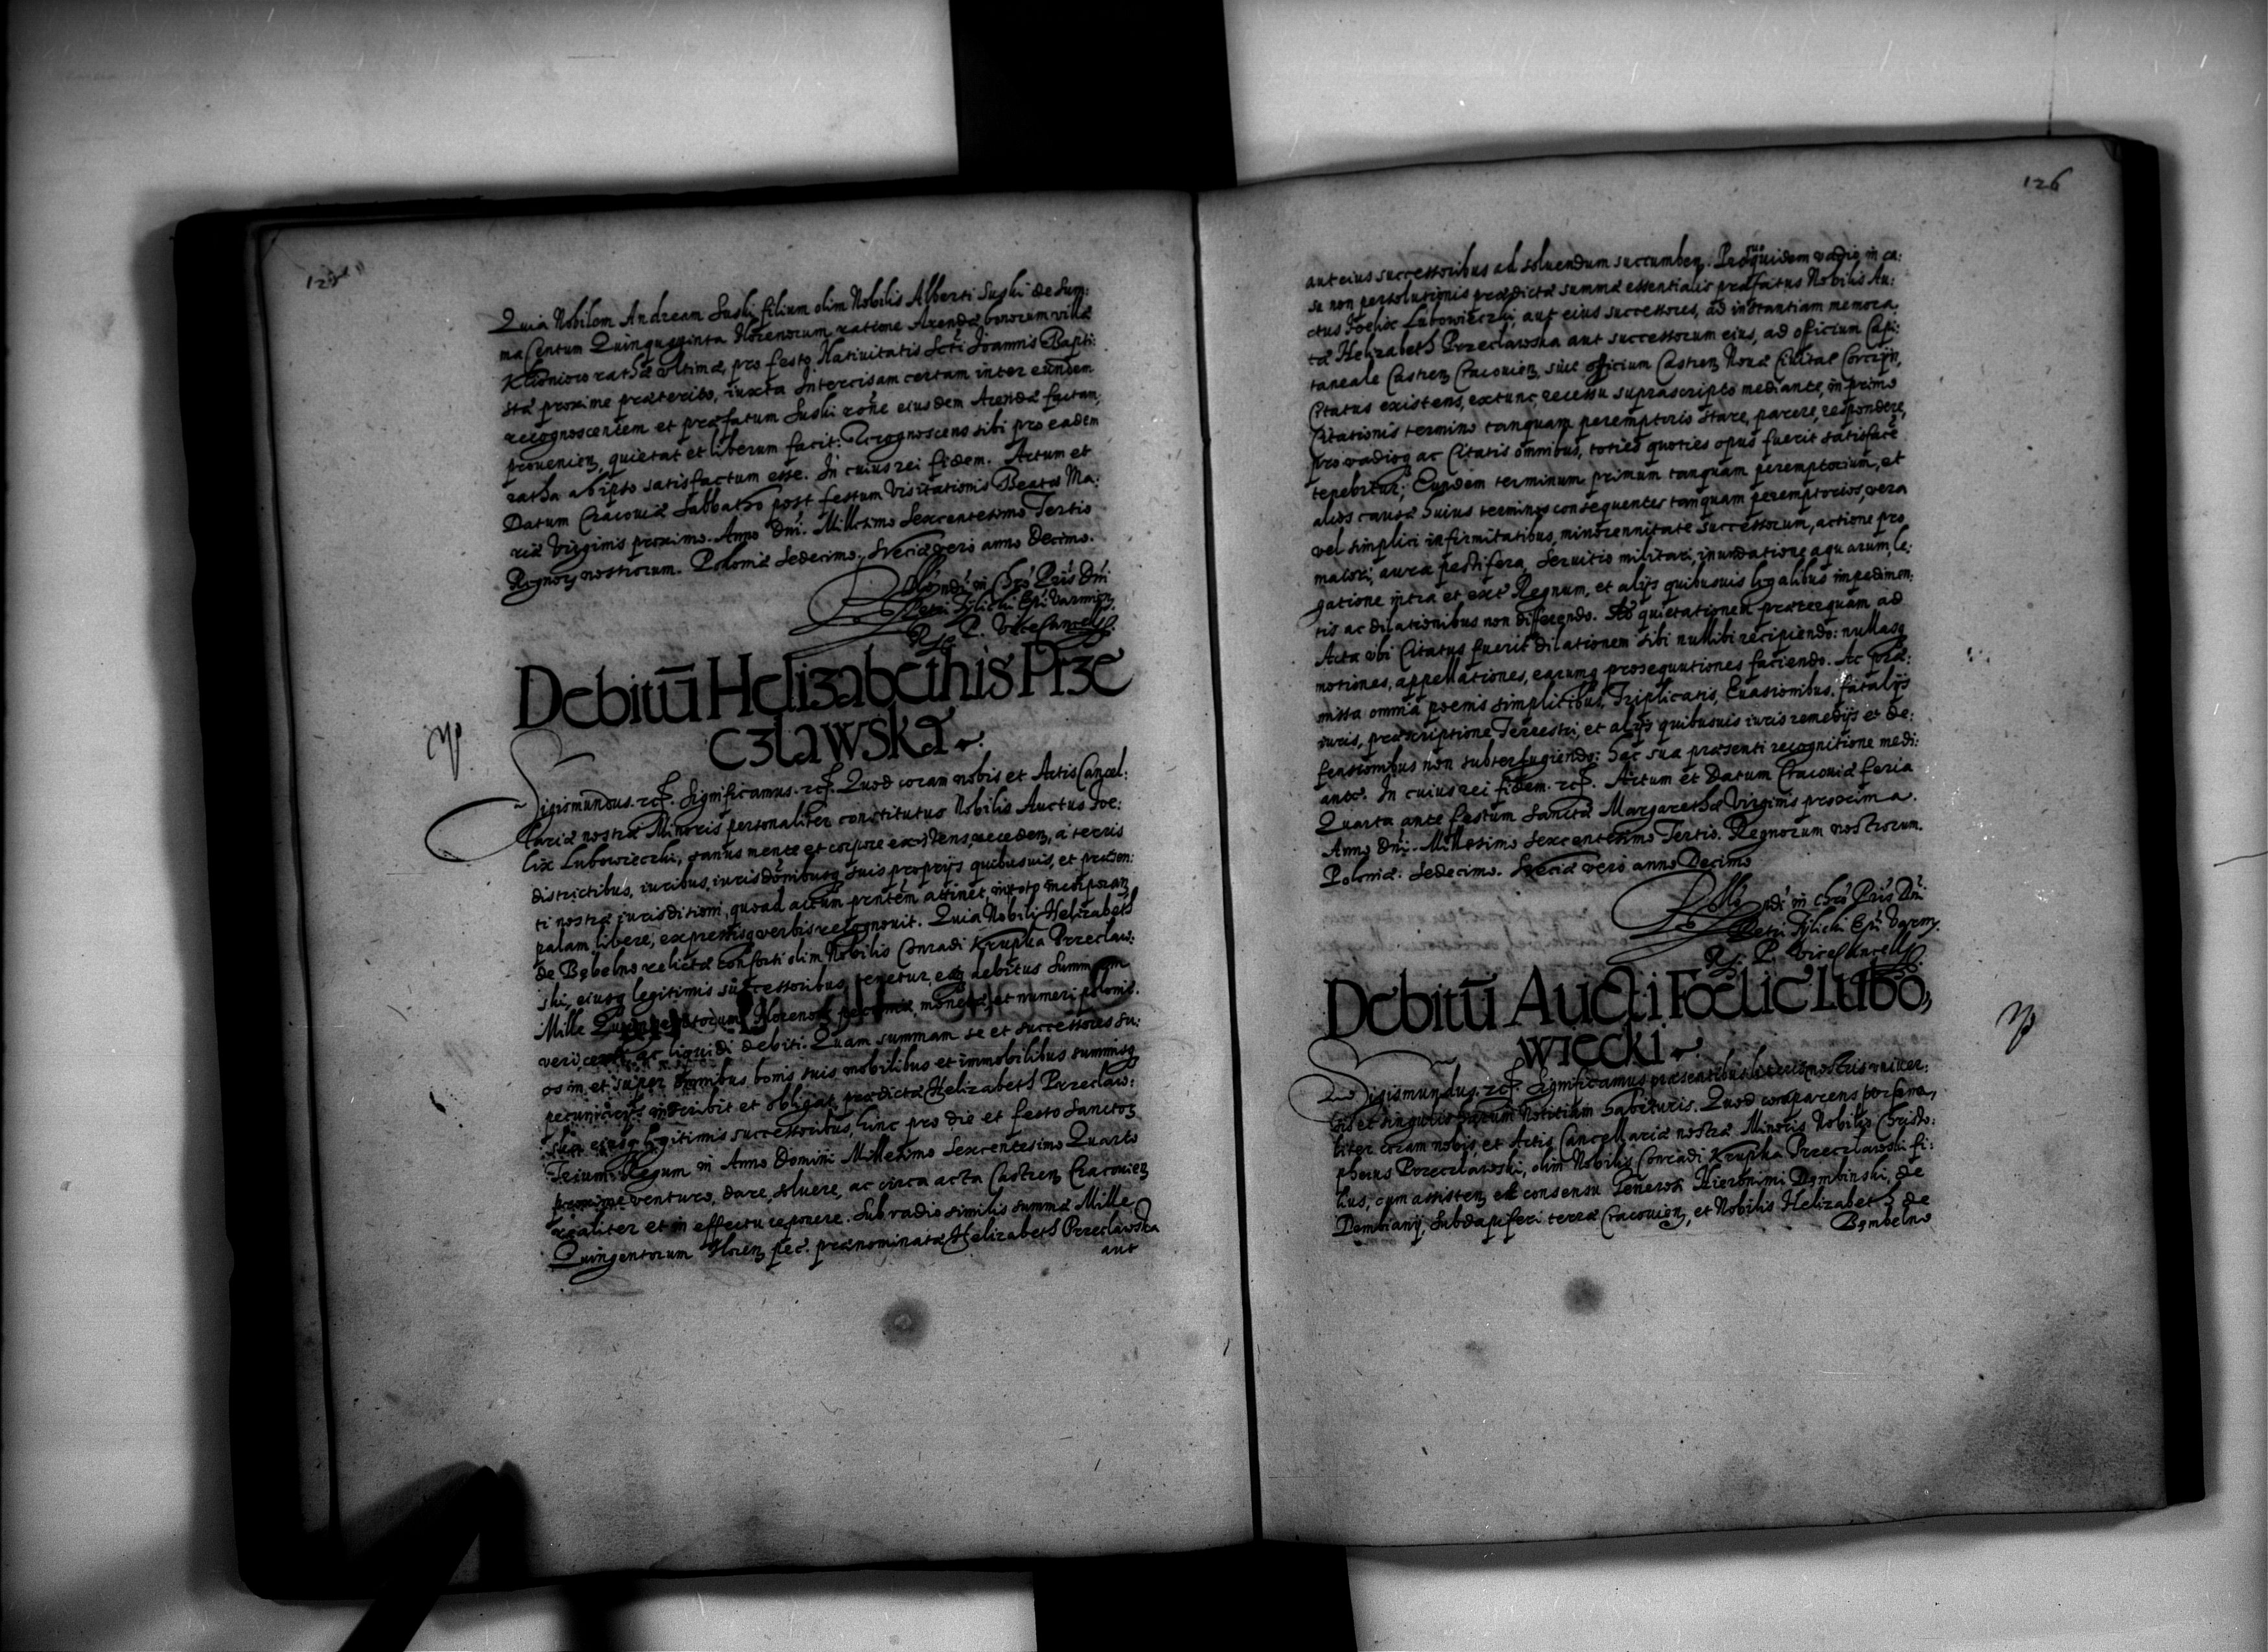 125
Quia Nobilem Andream Suski filium olim Nobilis Alberti Suski de Sum:
ma Centum Quinquaginta florenorum ratione Arendæ bonorum villæ
ratha ultima, pro festo Nativitatis Scti Joannis Bapti:
stæ proxime præterito, iuxta Intercisam certam inter eundem
recognoscentem et præfatum Suski rone eiusdem Arendæ factam,
provenien, quietat et liberum facit: Recognoscens sibi pro eadem
ratha ab ipso satisfactum esse. In cuius rei fidem. Actum et
Datum Cracoviæ Sabbatho post festum Visitationis Beatæ Ma:
riæ Virginis proximo. Anno Dni. Millesimo Sexcentesimo Tertio
Regnorz nostrorum. Poloniæ Sedecimo, Sveciæ vero anno Decimo.
Rndi in Chro Pris Dni
Petri Tylicki Epi Varmien
R. P. ViceCancell.
Debitū Helizabethis Prze
czlawska
Sigismundus. rcf. Significamus. rcf. Quod coram nobis et Actis Cancel:
lariæ nostræ Minoris personaliter constitutus Nobilis Auctus Foe:
lix Lubowieczki, sanus mente et corpore existens, receden, a terris
districtibus, iuribus, iurisdōnibusq suis proprijs quibusuis, et præsen:
ti nostræ iurisditioni, quoad actum pñtem attinet, in toto incorporan
palam, libere, expressisq verbis recognovit. Quia Nobili Helizabeth
de Bębelno relictæ consorti olim Nobilis Conradi Krupka Przeclaw:
ski, eiusq legitimis successoribus, tenetur, estq debitus Summam
Mille Quingentorum florenorz pecuniæ, monetæ, et numeri polonic.
veri, certi ac liquidi debiti. Quam summam se et successores su:
os in et super omnibus bonis suis mobilibus et immobilibus summisq
pecuniarijs inscribit et obligat, prædictæ Helizabeth Przeclaw:
skæ eiusq legitimis successoribus, hinc pro die et festo Sanctorz
Trium Regum in Anno Domini Millesimo Sexcentesimo Quarto
proxime venturo, dare, solvere, ac circa acta Castren Cracovien
realiter et in effectu reponere. Sub vadio similis summæ Mille
Quingentorum floren pec. prænominatæ Helizabeth Przeclawska
aut
126
aut eius successoribus ad solvendum succumben. Pro quo quidem vadio in ca:
su non persolutionis prædictæ summæ essentialis præfatus Nobilis Au:
ctus Foelix Lubowieczki, aut eius successores, ad instantiam memora
tæ Helizabeth Przeclawska aut successorum eius, ad officium Capi:
taneale Castren Cracovien, sive officium Castren Novæ Civitat Corczyn,
Citatus existens, extunc, recessu suprascripto mediante, in primo
Citationis termino tanquam peremptorio stare, parere, respondere,
pro vadioq ac Citatis omnibus, toties quoties opus fuerit satisfacē
tenebitur; Eundem terminum primum tanquam peremptorium, et
alios causæ huius terminos consequentes tanquam peremptorios, vera
vel simplici infirmitatibus, minorennitate successorum, actione pro
maiori, aura pestifera, servitio militari, inundatione aquarum, le:
gatione intra et extr Regnum, et alijs quibusuis legalibus impedimen:
tis ac dilationibus non differendo. Ad quietationem præterquam ad
Acta ubi Citatus fuerit dilationem sibi nullibi recipiendo: nullasq
motiones, appellationes, earumq prosequutiones faciendo. Ac præ:
missa omnia poenis simplicibus, Triplicatis, Evasionibus, fatalijs
iuris, præscriptione Terrestri, et alijs quibusuis iuris remedijs et de:
fensionibus non subterfugiendo: hac sua præsenti recognitione medi:
ante. In cuius rei fidem. rcf. Actum et Datum Cracoviæ feria
Quarta ante festum Sanctæ Margarethæ Virginis proxima.
Anno Dni. Millesimo Sexcentesimo Tertio. Regnorum nostrorum.
Poloniæ. Sedecimo. Sveciæ vero anno Decimo
Rndi in Chro Pris Dni
Petri Tylicki Epi Varmn.
R. P. ViceCancell
Debitū Aucti Foelic Lubo,
wiecki
Sigismundus. rcf. Significamus præsentibus literis nostris univer:
sis et singulis harum Notitiam habituris. Quod comparens persona,
liter coram nobis, et Actis Cancellariæ nostræ Minoris Nobilis Christo:
phorus Przeczlawski, olim Nobilis Conradi Krupka Przeczlawski fi:
lius, cum assisten et consensu Generosi Hieronimi Dembinski, de
Dembiany, Subdapiferi terræ Cracovien, et Nobilis Helizabeth de
Bęmbelno